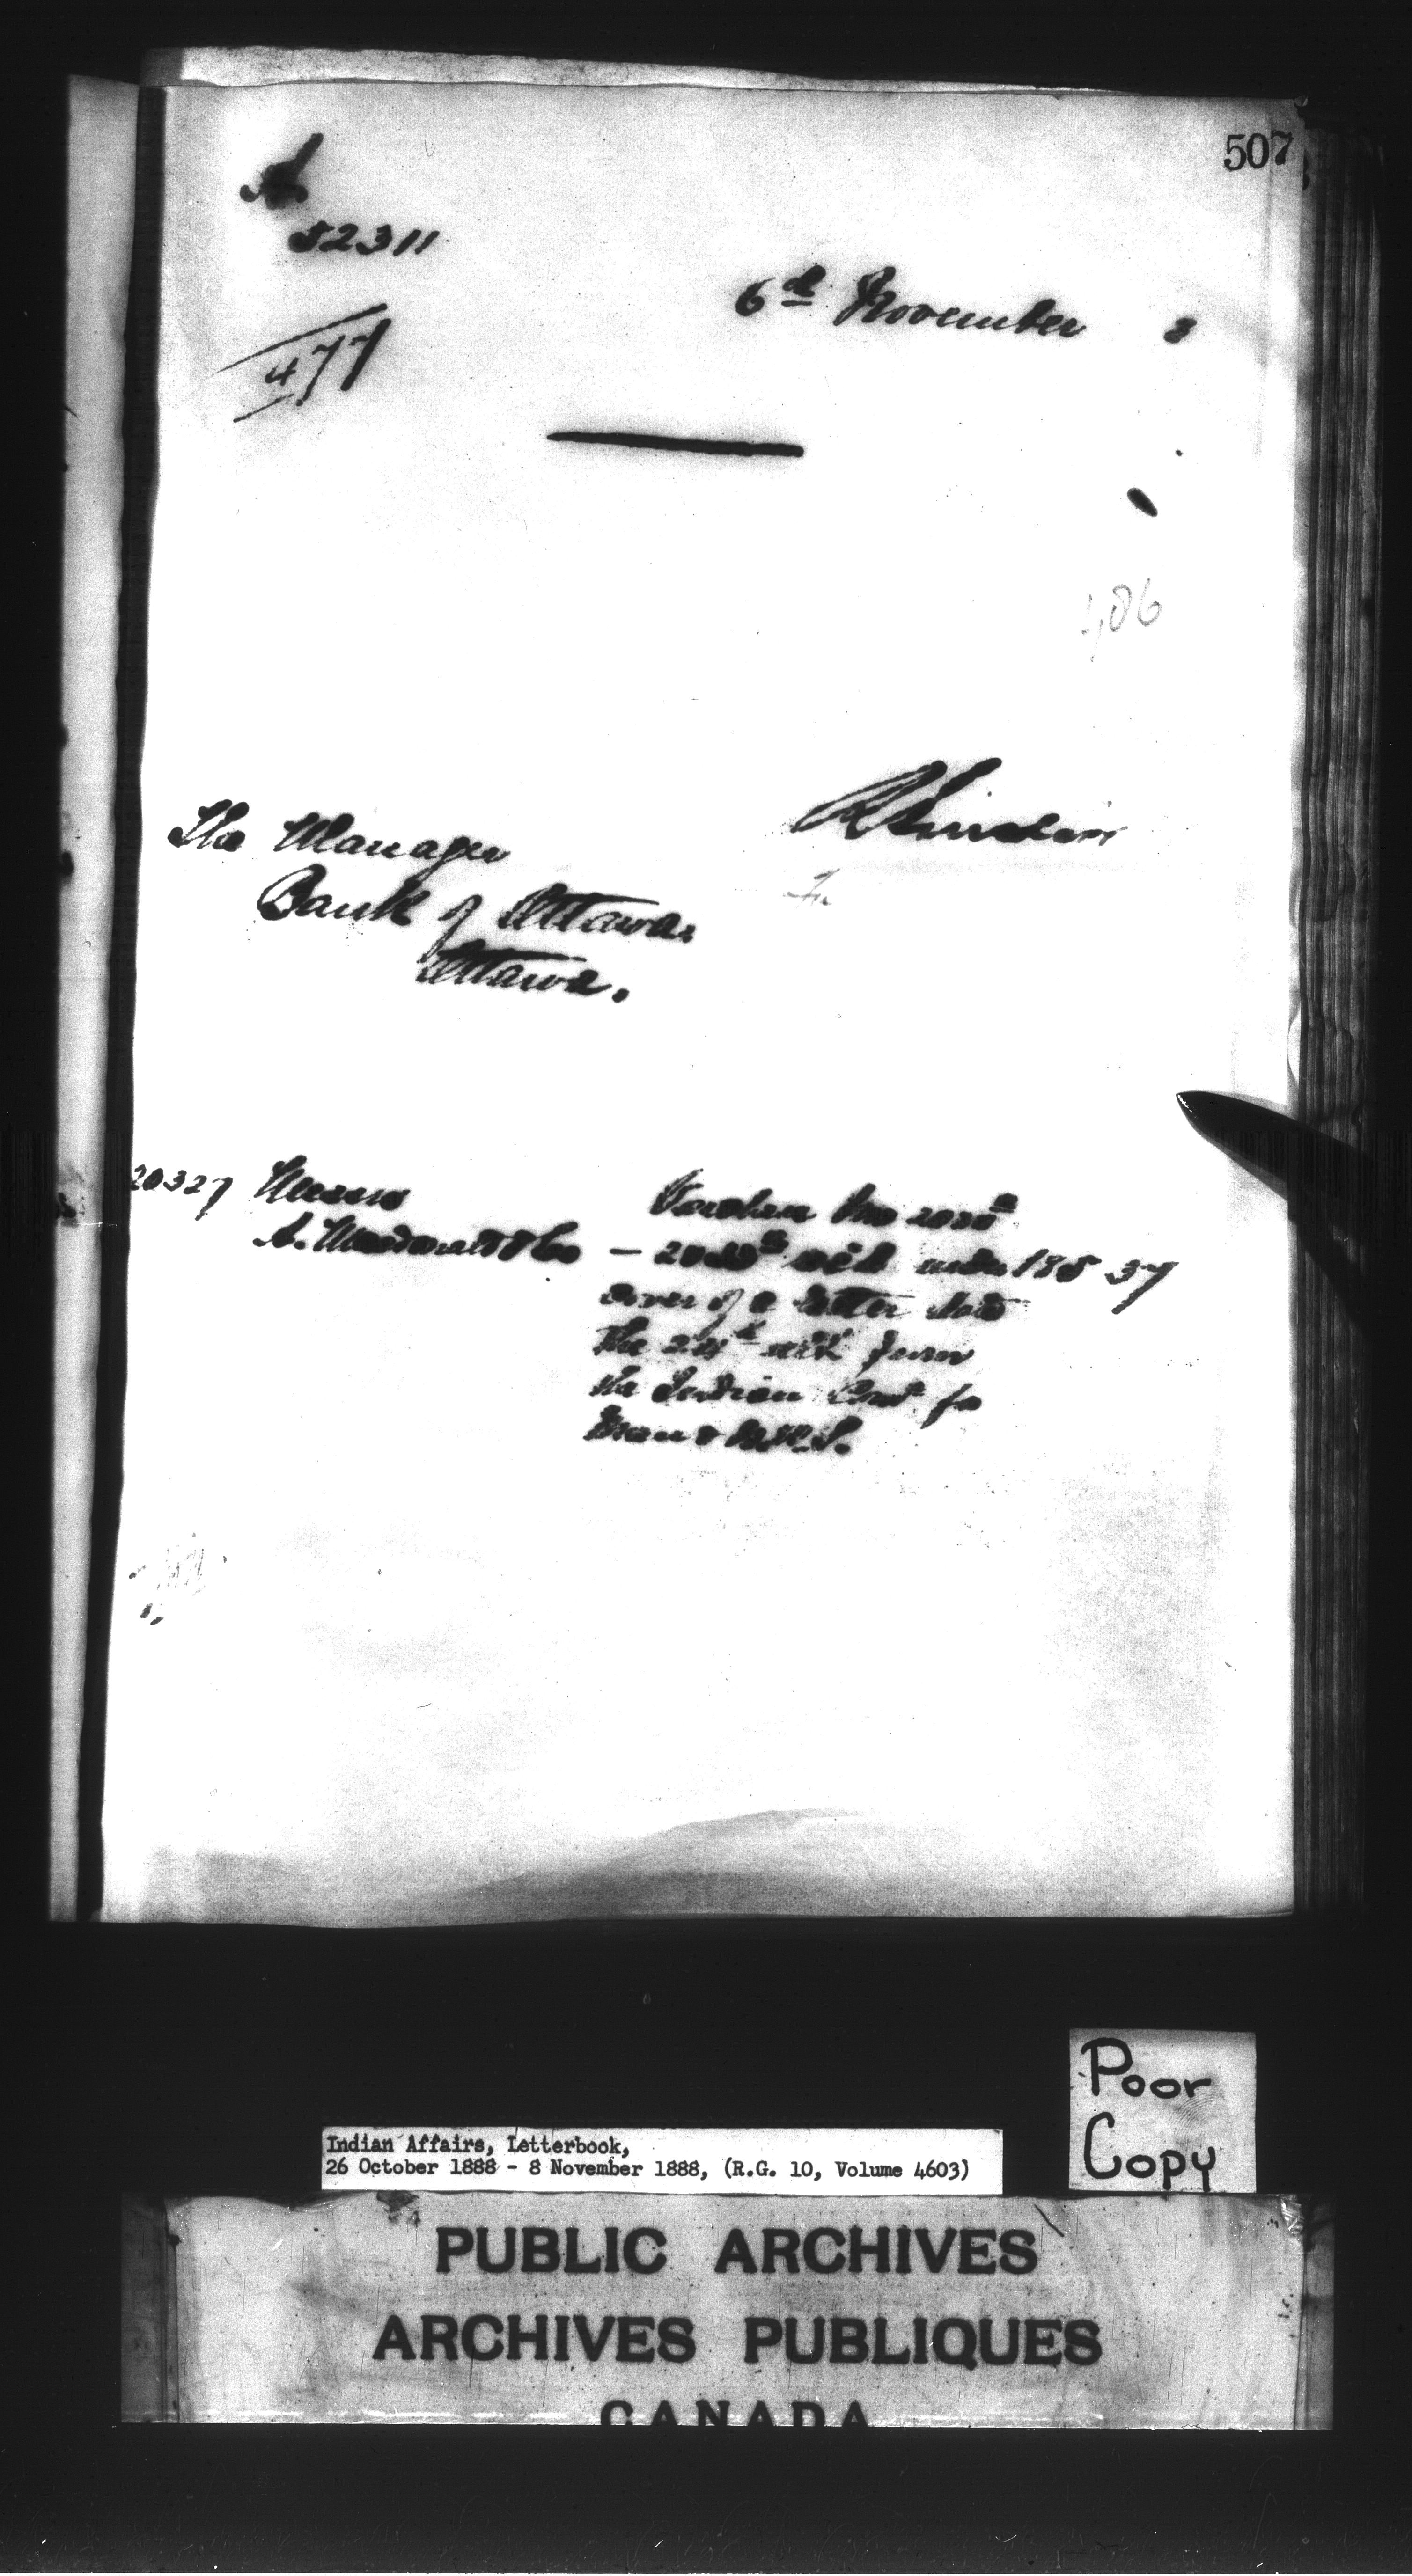 507
A
52311
6th November 8
477
406
The Manager
Bank of Ottawa.
Ottawa.
20327 Messrs
A. Macdonald & Co
Voucher No
under 185 37
cover of a letter
the ult from
the Indian for
Man & N.W.T.
Poor
Copy
Indian Affairs, Letterbook,
26 October 1888 - 8 November 1888, (R.G. 10, Volume 4603)
PUBLIC ARCHIVES
ARCHIVES PUBLIQUES
CANADA